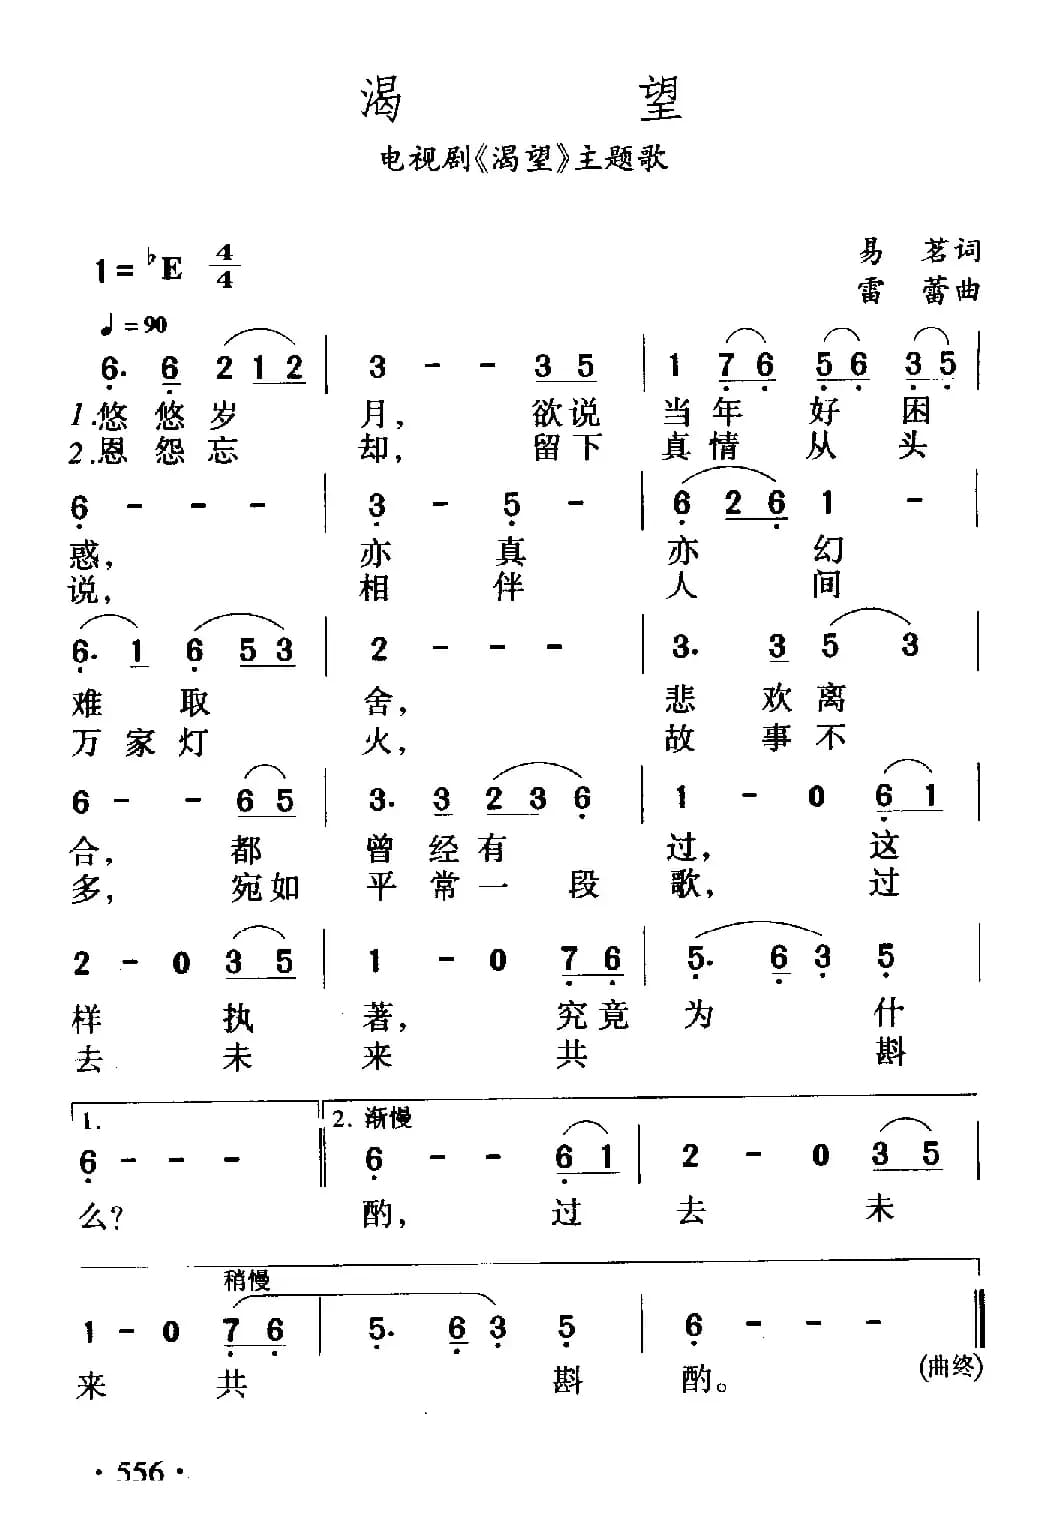 渴 望
电视剧《渴望》主题歌
1=♭E 4/4
易 茗词
雷 蕾曲
♩=90
6̣. 6̣ 2 1 2 | 3 - - 3 5 | 1 7̣ 6̣ 5̣ 6̣ 3̣ 5̣ |
1.悠 悠 岁 月, 欲说 当 年 好 困
2.恩 怨 忘 却, 留下 真 情 从 头
6̣ - - - | 3̣ - 5̣ - | 6̣ 2 6̣ 1 - |
惑, 亦 真 亦 幻
说, 相 伴 人 间
6̣. 1 6̣ 5 3 | 2 - - - | 3. 3 5 3
难 取 舍, 悲 欢 离
万 家 灯 火, 故 事 不
6 - - 6 5 | 3. 3 2 3 6̣ | 1 - 0 6̣ 1 |
合, 都 曾 经 有 过, 这
多, 宛如 平 常 一 段 歌, 过
2 - 0 3 5 | 1 - 0 7̣ 6̣ | 5̣. 6̣ 3̣ 5̣ |
样 执 著, 究竟 为 什
去 未 来 共 斟
1. 2. 渐慢
6̣ - - - ‖ 6̣ - - 6̣ 1 | 2 - 0 3 5 |
么? 酌, 过 去 未
稍慢
1 - 0 7̣ 6̣ | 5̣. 6̣ 3̣ 5̣ | 6̣ - - - ‖
来 共 斟 酌。 (曲终)
· 556 ·